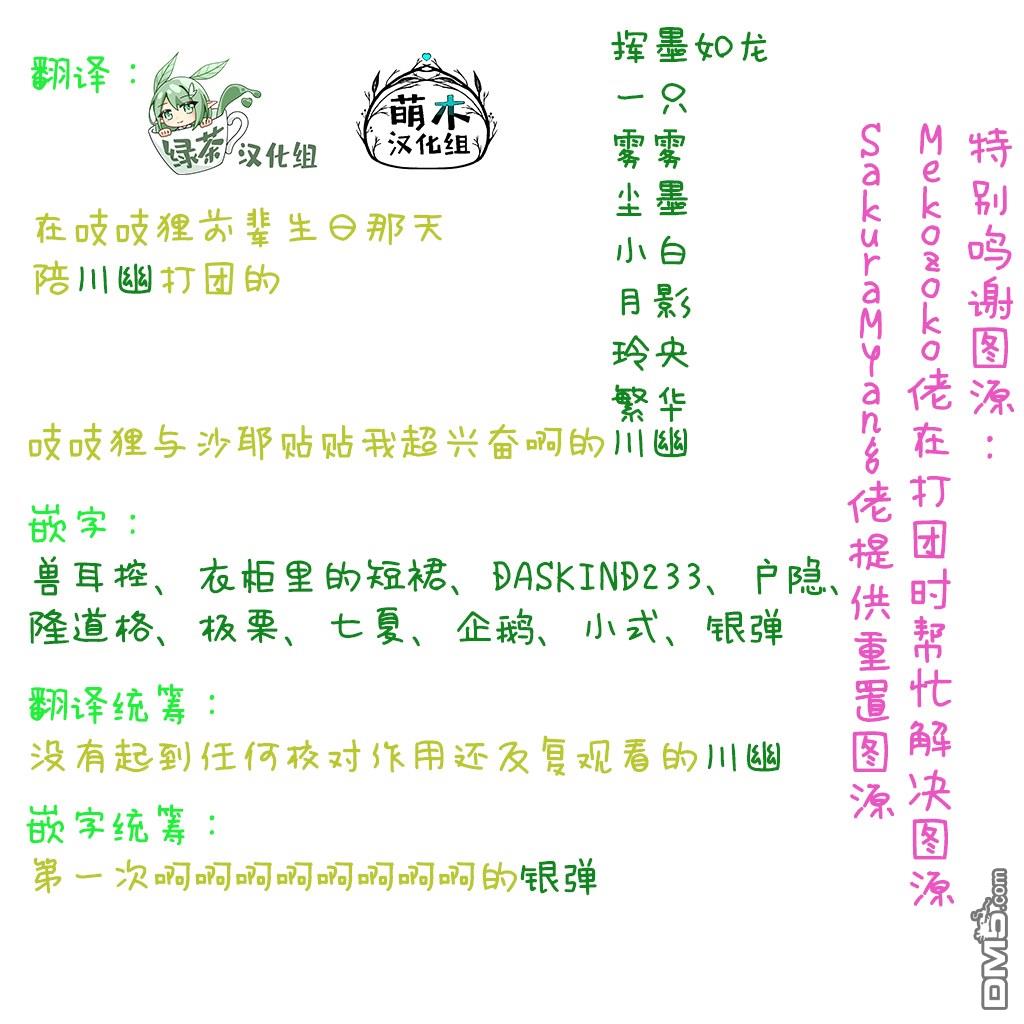 翻译：
绿茶汉化组
萌木
汉化组
挥墨如龙
一只
雾雾
尘墨
小白
月影
玲央
繁华
在吱吱狸前辈生日那天
陪川幽打团的
吱吱狸与沙耶贴贴我超兴奋啊的川幽
嵌字：
兽耳控、衣柜里的短裙、DASKIND233、户隐、
隆道格、板栗、七夏、企鹅、小式、银弹
翻译统筹：
没有起到任何校对作用还反复观看的川幽
嵌字统筹：
第一次啊啊啊啊啊啊啊啊的银弹
特别鸣谢图源：
Mekozoko佬在打团时帮忙解决图源
佬提供重置图源
DM5.com